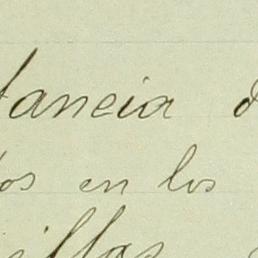 tancia d
tos en los
illas